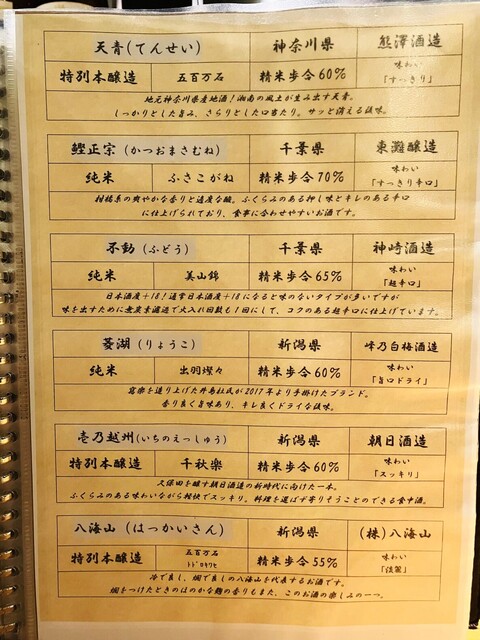 天青（てんせい） 神奈川県 熊澤酒造
特別本醸造 五百万石 精米歩合60% 味わい
「すっきり」
地元神奈川県産地酒！湘南の風土が生み出す天青。
しっかりとした旨み、さらりとした口当たり。サッと消える後味。
鰹正宗（かつおまさむね） 千葉県 東灘醸造
純米 ふさこがね 精米歩合70% 味わい
「すっきり辛口」
柑橘系の爽やかな香りと適度な酸。ふくらみのある押し味とキレのある辛口
に仕上げられており、食事に合わせやすいお酒です。
不動（ふどう） 千葉県 神崎酒造
純米 美山錦 精米歩合65% 味わい
「超辛口」
日本酒度+18！通常日本酒度+18になると味のないタイプが多いですが
味を出すために無炭素濾過で火入れ回数も1回にして、コクのある超辛口に仕上げています。
菱湖（りょうこ） 新潟県 峰乃白梅酒造
純米 出羽燦々 精米歩合60% 味わい
「旨口ドライ」
を造り上げた井島杜氏が2017年より手掛けたブランド。
香り良く旨味あり、キレ良くドライな後味。
壱乃越州（いちのえっしゅう） 新潟県 朝日酒造
特別本醸造 千秋楽 精米歩合60% 味わい
「スッキリ」
久保田を醸す朝日酒造の新時代に向けた一本。
ふくらみのある味わいながら軽快でスッキリ。料理を選ばず寄りそうことのできる食中酒。
八海山（はっかいさん） 新潟県 （株）八海山
特別本醸造 五百万石
トドロキワセ 精米歩合55% 味わい
「淡麗」
冷で良し、燗で良しの八海山を代表するお酒です。
燗をつけたときのほのかな麹の香りもまた、このお酒の楽しみの一つ。